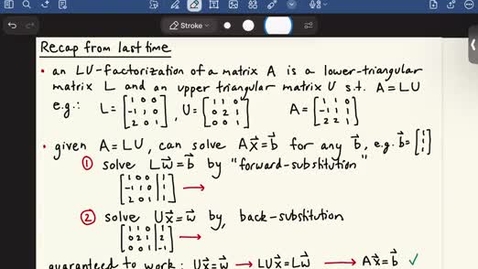 Stroke
Recap from last time
• an LU-factorization of a matrix A is a lower-triangular
matrix L and an upper triangular matrix U s.t. A=LU
e.g.: L = [1 0 0; -1 1 0; 2 0 1], U = [1 1 0; 0 2 1; 0 0 1] A = [1 1 0; -1 1 1; 2 2 1]
• given A=LU, can solve Ax⃗=b⃗ for any b⃗, e.g. b⃗=[1; 1; 1]
① solve Lw⃗=b⃗ by "forward-substitution"
[1 0 0 | 1; -1 1 0 | 1; 2 0 1 | 1] →
② solve Ux⃗=w⃗ by, back-substitution
[1 1 0 | 1; 0 2 1 | 2; 0 0 1 | -1] →
guaranteed to work: Ux⃗=w⃗ → LUx⃗=Lw⃗ → Ax⃗=b⃗ ✓